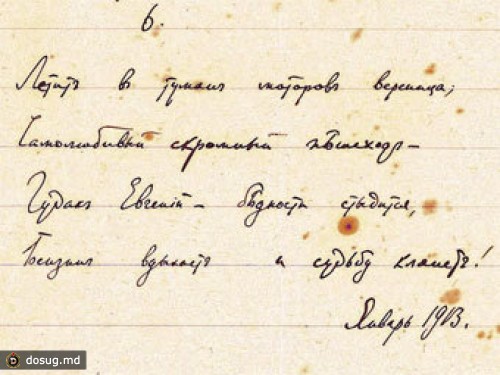 6.
Летитъ в туманъ моторовъ вереница;
Самолюбивый скромный пѣшеходъ –
Чудакъ Евгеній – бѣдности стыдится,
Бензинъ вдыхаетъ и судьбу клянетъ!
Январь 1913.
dosug.md